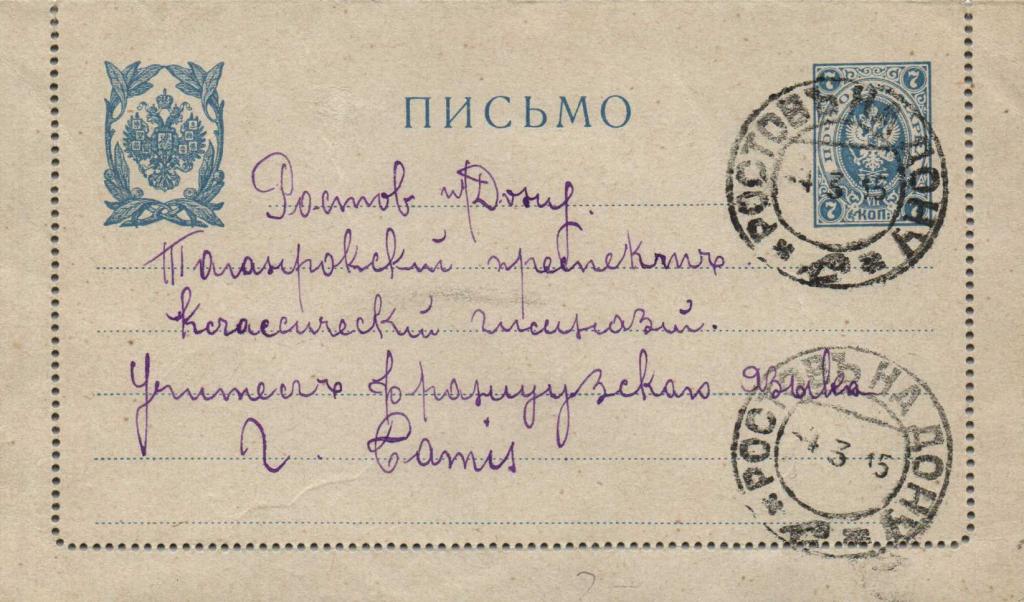 ПИСЬМО
7 7
ПОЧТОВАЯ МАРКА
7 КОП. 7
РОСТОВЪ НА ДОНУ
4 3 15
Ростов н/Дону.
Таганрокский преспектъ
классический гимназий.
Учитель французскаго языка
Г. Camis
РОСТОВЪ НА ДОНУ
-4 3 15